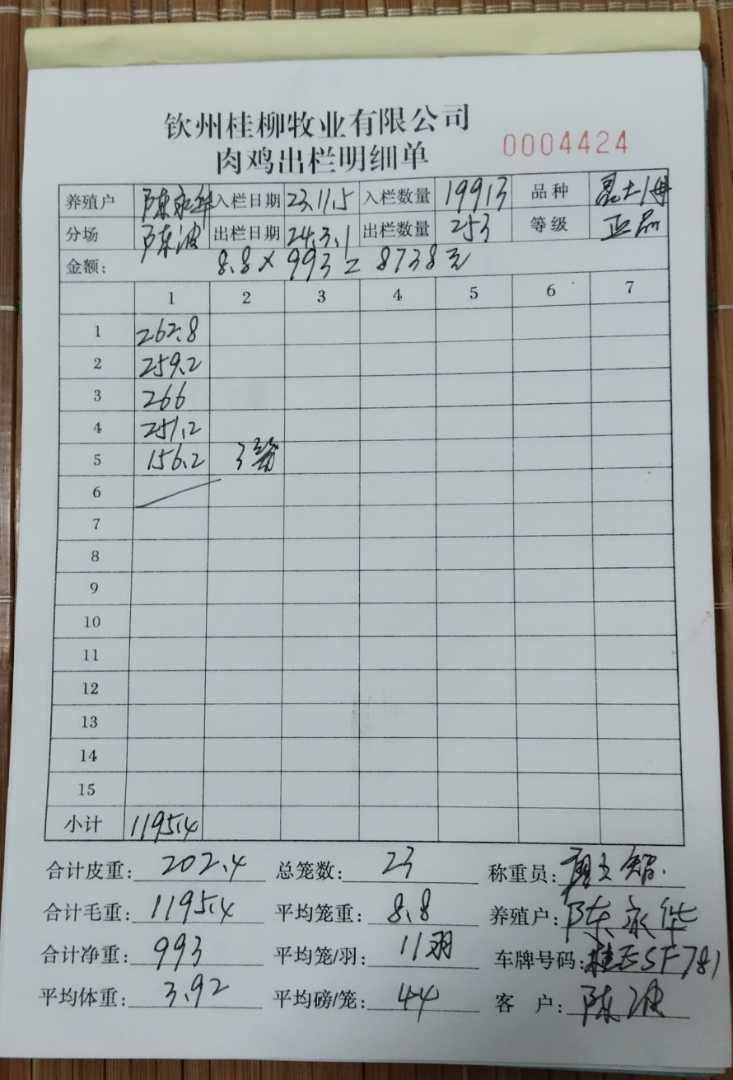 钦州桂柳牧业有限公司
肉鸡出栏明细单 0004424
养殖户 陈永华 入栏日期 23.11.5 入栏数量 19913 品种
分场 陈波 出栏日期 24.3.1 出栏数量 253 等级 正品
金额: 8.8×993=8738元
1 2 3 4 5 6 7
1 262.8
2 259.2
3 266
4 251.2
5 156.2 3笼
6
7
8
9
10
11
12
13
14
15
小计 1195.4
合计皮重: 202.4 总笼数: 23 称重员:
合计毛重: 1195.4 平均笼重: 8.8 养殖户: 陈永华
合计净重: 993 平均笼/羽: 11羽 车牌号码: 桂ESF781
平均体重: 3.92 平均磅/笼: 44 客 户: 陈波